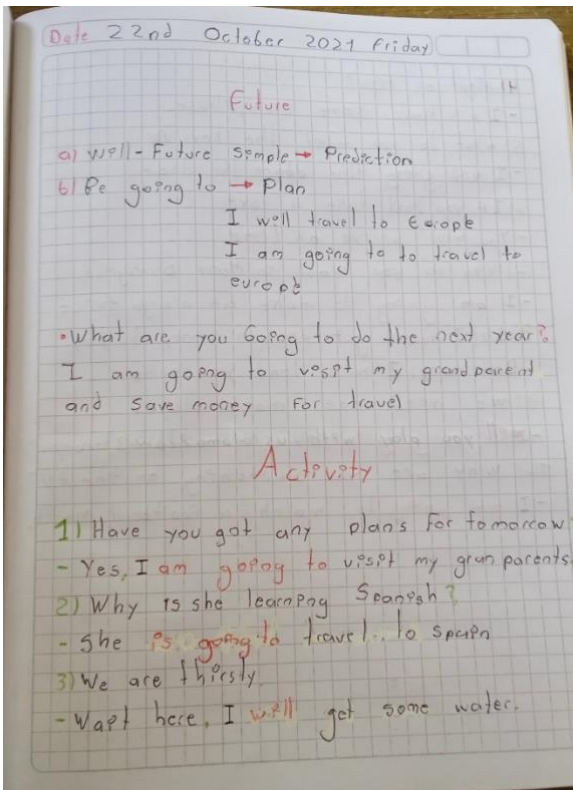 Date 22nd October 2021 Friday
14
Future
a) Will - Future simple → Prediction
b) Be going to → Plan
I will travel to Europe
I am going to to travel to
europe
• What are you Going to do the next year?
I am going to visit my grandparent
and save money For travel
Activity
1) Have you got any plans For tomorrow
- Yes, I am going to visit my granparents.
2) Why is she learning Spanish?
- She is going to travel.. to Spain
3) We are thirsty.
- Wait here, I will get some water.